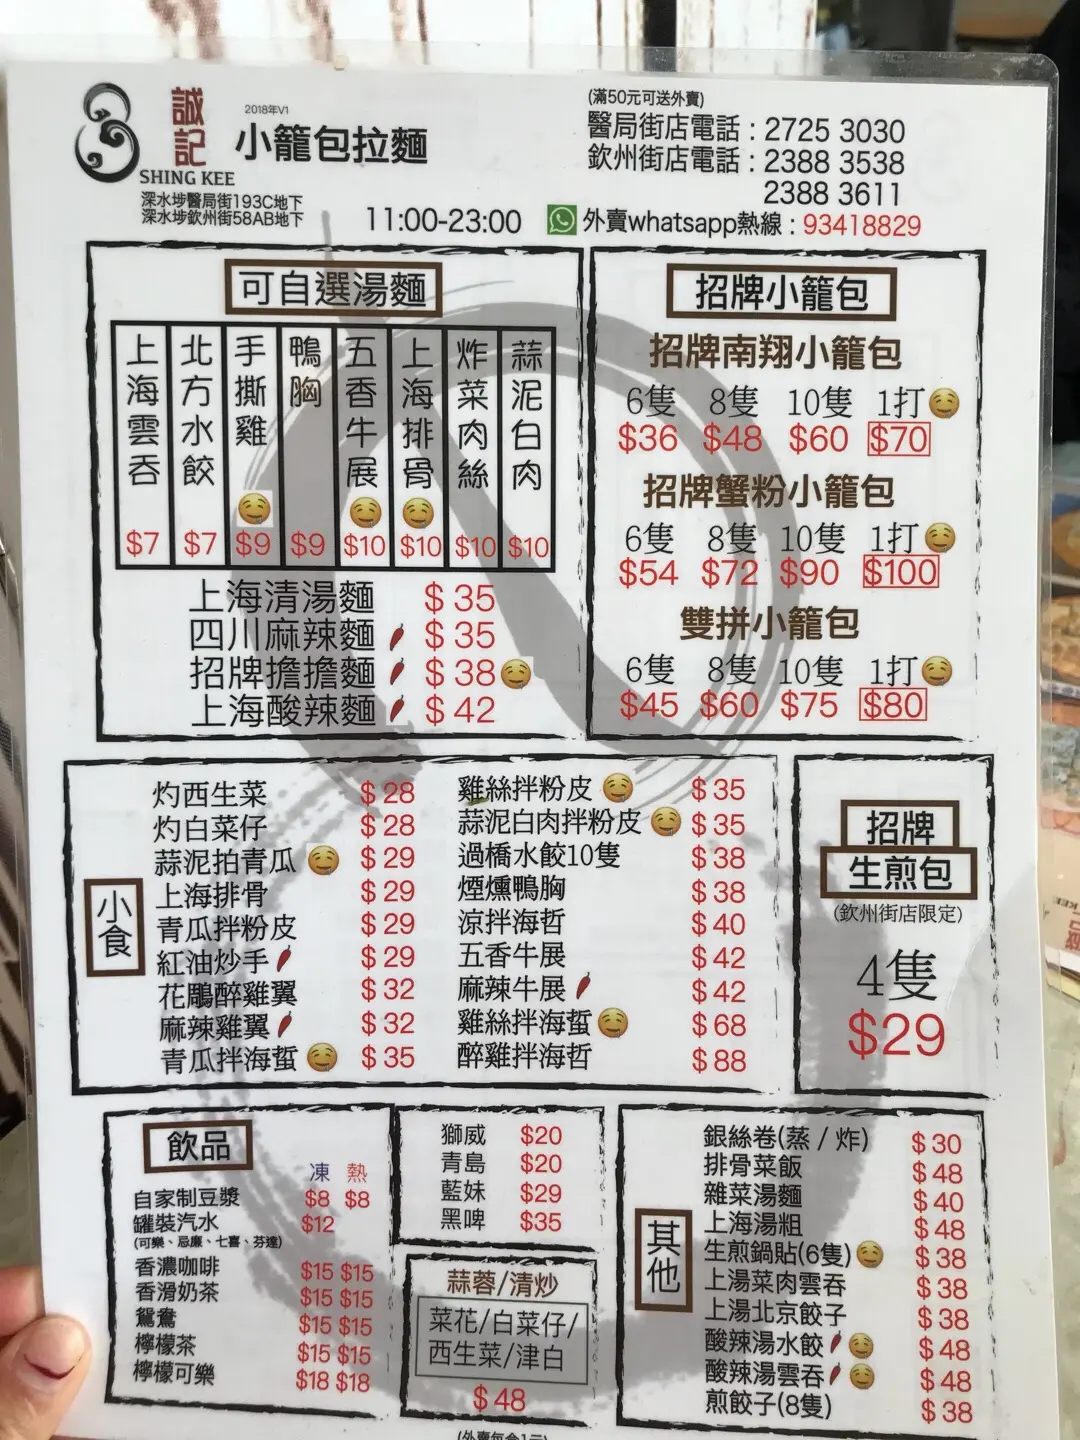 誠記
SHING KEE
2018年V1
小籠包拉麵
深水埗醫局街193C地下
深水埗欽州街58AB地下
11:00-23:00
(滿50元可送外賣)
醫局街店電話 : 2725 3030
欽州街店電話 : 2388 3538
2388 3611
外賣whatsapp熱線 : 93418829
可自選湯麵
上海雲吞 $7
北方水餃 $7
手撕雞 $9
鴨胸 $9
五香牛展 $10
上海排骨 $10
炸菜肉絲 $10
蒜泥白肉 $10
上海清湯麵 $ 35
四川麻辣麵 $ 35
招牌擔擔麵 $ 38
上海酸辣麵 $ 42
招牌小籠包
招牌南翔小籠包
6隻 8隻 10隻 1打
$36 $48 $60 $70
招牌蟹粉小籠包
6隻 8隻 10隻 1打
$54 $72 $90 $100
雙拼小籠包
6隻 8隻 10隻 1打
$45 $60 $75 $80
小食
灼西生菜 $ 28
灼白菜仔 $ 28
蒜泥拍青瓜 $ 29
上海排骨 $ 29
青瓜拌粉皮 $ 29
紅油炒手 $ 29
花鵰醉雞翼 $ 32
麻辣雞翼 $ 32
青瓜拌海蜇 $ 35
雞絲拌粉皮 $ 35
蒜泥白肉拌粉皮 $ 35
過橋水餃10隻 $ 38
煙燻鴨胸 $ 38
涼拌海哲 $ 40
五香牛展 $ 42
麻辣牛展 $ 42
雞絲拌海蜇 $ 68
醉雞拌海哲 $ 88
招牌
生煎包
(欽州街店限定)
4隻
$29
飲品
凍 熱
自家制豆漿 $8 $8
罐裝汽水 $12
(可樂、忌廉、七喜、芬達)
香濃咖啡 $15 $15
香滑奶茶 $15 $15
鴛鴦 $15 $15
檸檬茶 $15 $15
檸檬可樂 $18 $18
獅威 $20
青島 $20
藍妹 $29
黑啤 $35
蒜蓉/清炒
菜花/白菜仔/
西生菜/津白
$ 48
其他
銀絲卷(蒸 / 炸) $ 30
排骨菜飯 $ 48
雜菜湯麵 $ 40
上海湯粗 $ 48
生煎鍋貼(6隻) $ 38
上湯菜肉雲吞 $ 38
上湯北京餃子 $ 38
酸辣湯水餃 $ 48
酸辣湯雲吞 $ 48
煎餃子(8隻) $ 38